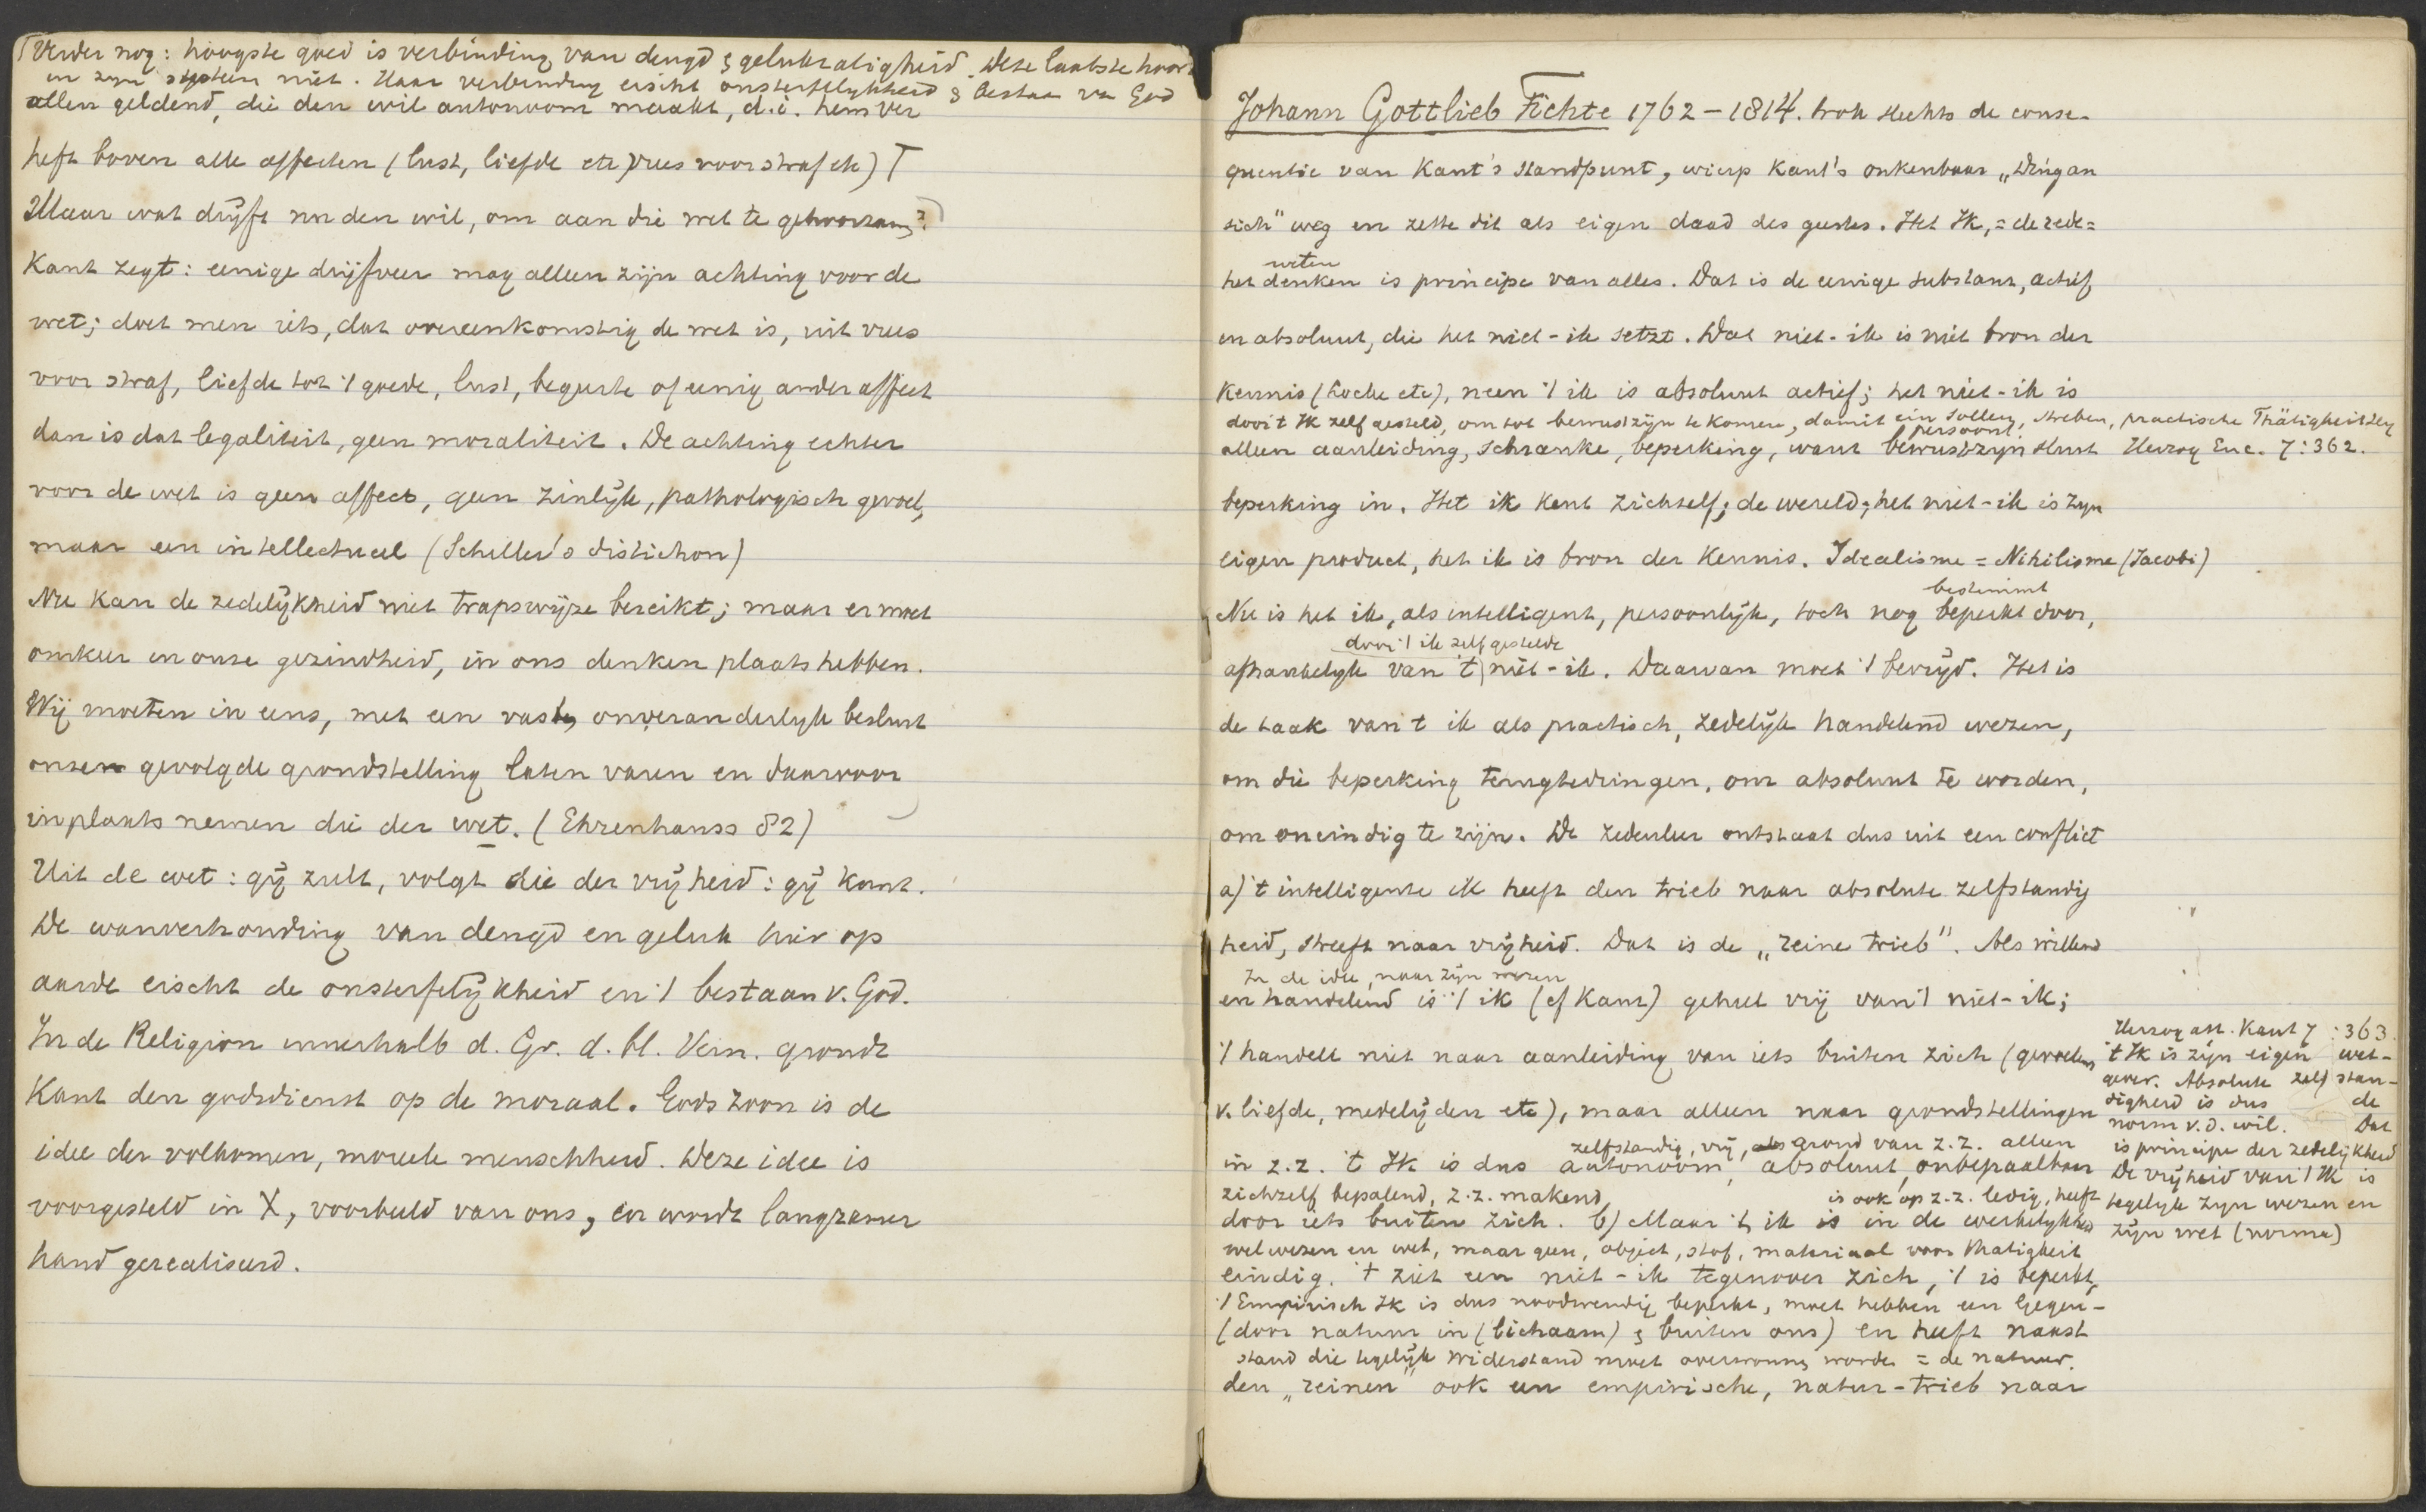 Verder nog: hoogste goed is verbinding van deugd & gelukzaligheid. Deze laatste hoort
in zijn systeem niet. Haar verbinding eischt onsterfelykheid & bestaan van God
allen geldend, die den wil autonoom maakt, d.i. hem ver
heft boven alle affecten (lust, liefde etc vrees voor straf etc)
Maar wat drijft nu den wil, om aan die wet te gehoorzamen?
Kant zegt: eenige drijfveer mag alleen zijn achting voor de
wet; doet men iets, dat overeenkomstig de wet is, uit vrees
voor straf, liefde tot 't goede, lust, begeerte of eenig ander affect
dan is dat legaliteit, geen moraliteit. De achting echter
voor de wet is geen affect, geen zinlijk, pathologisch gevoel,
maar een intellectueel (Schiller's distichon)
Nu kan de zedelijkheid niet trapswijze bereikt; maar er moet
omkeer in onze gezindheid, in ons denken plaats hebben.
Wij moeten in eens, met een vast, onveranderlyk besluit
onzen gevolgde grondstelling laten varen en daarvoor
inplaats nemen die der wet. (Ehrenhauss 82)
Uit de wet: gij zult, volgt die der vrijheid: gij kunt.
De wanverhouding van deugd en geluk hier op
aarde eischt de onsterfelijkheid en 't bestaan v. God.
In de Religion innerhalb d. Gr. d. bl. Vern. grondt
Kant den godsdienst op de moraal. Gods zoon is de
idee der volkomen, moreele menschheid. Deze idee is
voorgesteld in X, voorbeeld van ons, en wordt langzamer
hand gerealiseerd.
Johann Gottlieb Fichte 1762-1814. trok slechts de conse-
quentie van Kant's standpunt, wierp Kant's onkenbaar „Ding an
sich" weg en zette dit als eigen daad des geestes. Het Ik, = de rede =
weten
het denken is principe van alles. Dat is de eenige substanz, actief
en absoluut, die het niet-ik setzt. Dat niet-ik is niet bron der
kennis (Locke etc), neen 't ik is absoluut actief; het niet-ik is
door 't Ik zelf gesteld, om tot bewustzijn te komen, damit ein Sollen, Streben, practische Thätigheit
persoonl.
alleen aanleiding, Schranke, beperking, want bewustzijn sluit Herzog Enc. 7:362.
beperking in. Het ik kent zichzelf; de wereld, het niet-ik is zijn
eigen product, het ik is bron der kennis. Idealisme = Nihilisme (Jacobi)
bestimmt
Nu is het ik, als intelligent, persoonlijk, toch nog beperkt door,
door 't ik zelf gestelde
afhankelyk van 't niet-ik. Daarvan moet 't bevrijd. Het is
de taak van 't ik als practisch, zedelijk handelend wezen,
om die beperking terugtedringen, om absoluut te worden,
om oneindig te zijn. De zedenleer ontstaat dus uit een conflict
a) 't intelligente ik heeft den trieb naar absolute zelfstandig
heid, streeft naar vrijheid. Dat is de „reine trieb". Als willend
In de idee, naar zijn wezen
en handelend is 't ik (cf Kant) geheel vrij van 't niet-ik;
't handelt niet naar aanleiding van iets buiten zich (gevoelens
v. liefde, medelijden etc), maar alleen naar grondstellingen
zelfstandig, vrij, grond van z.z. alleen
in z.z. 't Ik is dus autonoom, absoluut, onbepaalbaar
zichzelf bepalend, z.z. makend, is ook op z.z. ledig, heeft
door iets buiten zich. b) Maar 't ik is in de werkelykheid
wel wezen en wet, maar geen, object, stof, materiaal voor thätigheit
eindig. 't ziet een niet-ik tegenover zich, 't is beperkt,
't Empirisch Ik is dus noodwendig beperkt, moet hebben een Gegen-
(door natuur in (lichaam) & buiten ons) en heeft naast
stand die tegelijk Widerstand moet overwonnen worden = de natuur.
den „reinen" ook een empirische, natur-trieb naar
Herzog art. Kant 7:363.
't Ik is zijn eigen wet-
gever. Absolute zelfstan-
digheid is dus de
norm v.d. wil. Dat
is principe der zedelijkheid
De vrijheid van 't Ik is
tegelijk zijn wezen en
zijn wet (norma)